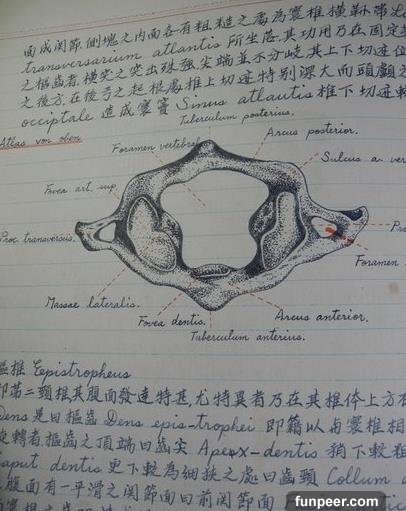 面成关節,側塊之内面各有粗糙之處為寰椎橫靱帶
transversarium atlantis 所坐落,其功用乃在固定
之樞齒,橫突之突出殊強,尖端並不分岐,其上下切迹
之後方,在後弓之起根處,椎上切迹特别深大而頭顱
occiptale 造成寰竇 Sinus atlautis 椎下切迹
Tuberculum posterius.
Atlas von oben
Foramen vertebral
Arcus posterior.
Sulcus a. ver
Fovea art. sup.
Proc. transversus.
Foramen
Massae lateralis.
Arcus anterior.
Fovea dentis.
Tuberculum anterius.
樞椎 Eepistropheus
即第二頸椎其腹面發達特甚,尤特異者乃在其椎体上方
Dens 是曰樞齒 Dens epis-trophei 即藉以与寰椎相
旋轉者樞齒之頂端曰齒尖 Apex-dentis 稍下較粗
caput dentis 更下較為細狭之處曰齒頸 Collum
腹面有一平滑之关節面曰前关節面
funpeer.com